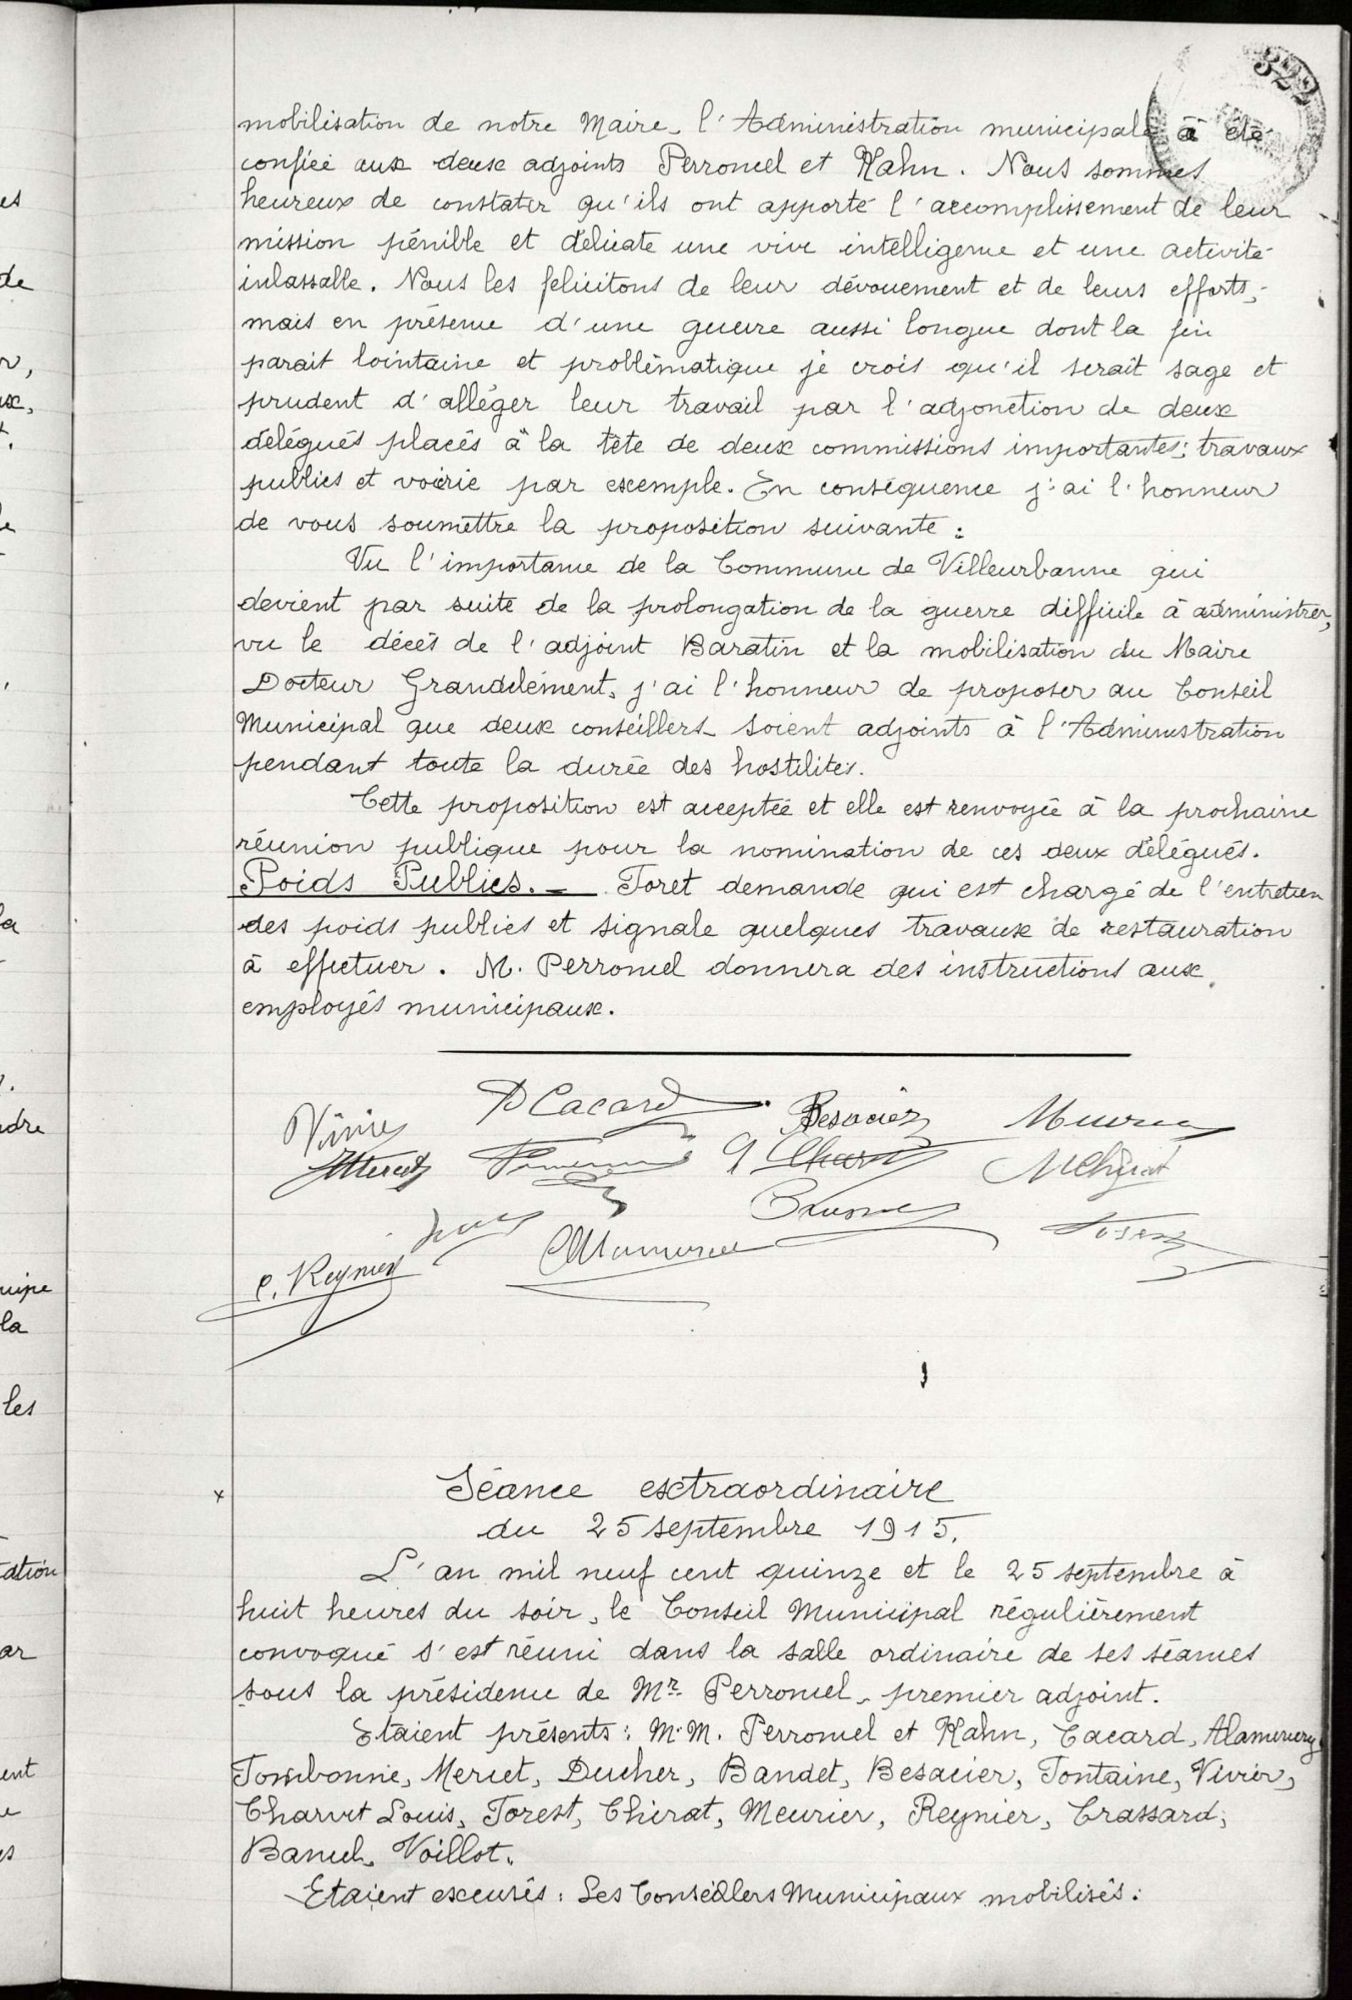 322
mobilisation de notre Maire, l'Administration municipale a été
confiée aux deux adjoints Perroncel et Kahn. Nous sommes
heureux de constater qu'ils ont apporté l'accomplissement de leur
mission pénible et délicate une vive intelligence et une activité
inlassable. Nous les felicitons de leur dévouement et de leurs efforts,
mais en présence d'une guerre aussi longue dont la fin
parait lointaine et problématique je crois qu'il serait sage et
prudent d'alléger leur travail par l'adjonction de deux
délégués placés à la tête de deux commissions importantes; travaux
publics et voirie par exemple. En conséquence j'ai l'honneur
de vous soumettre la proposition suivante :
Vu l'importance de la Commune de Villeurbanne qui
devient par suite de la prolongation de la guerre difficile à administrer,
vu le décès de l'adjoint Baratin et la mobilisation du Maire
Docteur Grandclément, j'ai l'honneur de proposer au Conseil
Municipal que deux conseillers soient adjoints à l'Administration
pendant toute la durée des hostilités.
Cette proposition est acceptée et elle est renvoyée à la prochaine
réunion publique pour la nomination de ces deux délégués.
Poids Publics. — Foret demande qui est chargé de l'entretien
des poids publics et signale quelques travaux de restauration
à effectuer. M. Perroncel donnera des instructions aux
employés municipaux.
Vivier Cacard Besacier Meurier
Mercet Chirat
C. Reynier
Séance extraordinaire
du 25 septembre 1915.
L'an mil neuf cent quinze et le 25 septembre à
huit heures du soir, le Conseil Municipal régulièrement
convoqué s'est réuni dans la salle ordinaire de ses séances
sous la présidence de Mr. Perroncel, premier adjoint.
Etaient présents : M.M. Perroncel et Kahn, Cacard, Alamercery,
Fombonne, Mercet, Ducher, Bandet, Besacier, Fontaine, Vivier,
Charvet Louis, Forest, Chirat, Meurier, Reynier, Crassard,
Banuel, Voillot.
Etaient excusés : Les Conseillers Municipaux mobilisés.